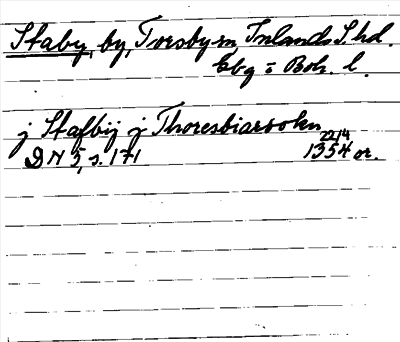 Staby, by, Torsby sn, Inlands S. hd.
Gbg o Boh. l.
j Stafbij j Thoresbiarsokn
22/4
DN 5, s. 171 1354 or.